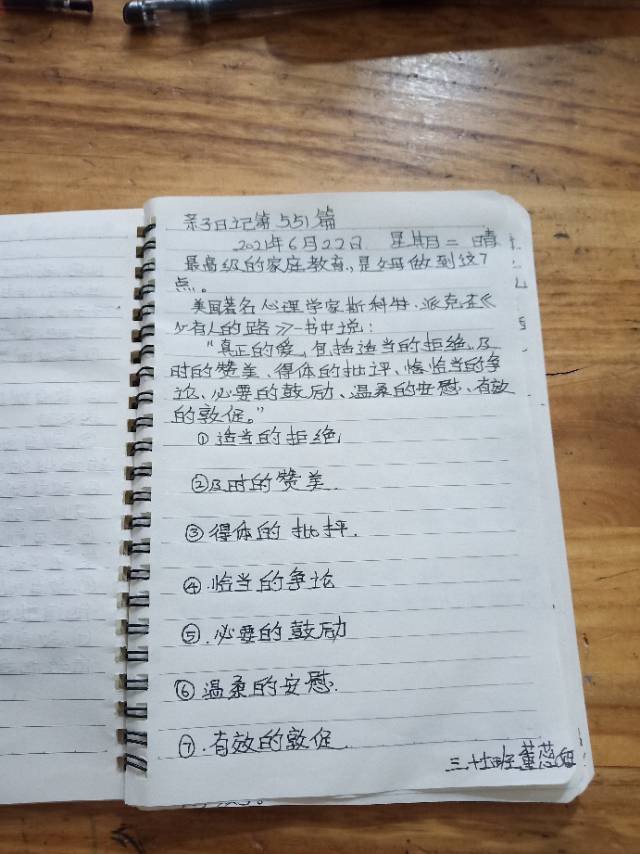 亲子日记第551篇
2021年6月22日 星期二 晴
最高级的家庭教育,是父母做到这7
点。
美国著名心理学家斯科特·派克在《
少有人的路》一书中说:
"真正的爱,包括适当的拒绝、及
时的赞美、得体的批评、恰当的争
论、必要的鼓励、温柔的安慰、有效
的敦促。"
①适当的拒绝
②及时的赞美
③得体的批评.
④.恰当的争论
⑤.必要的鼓励
⑥温柔的安慰.
⑦.有效的敦促
三.十班董蕊